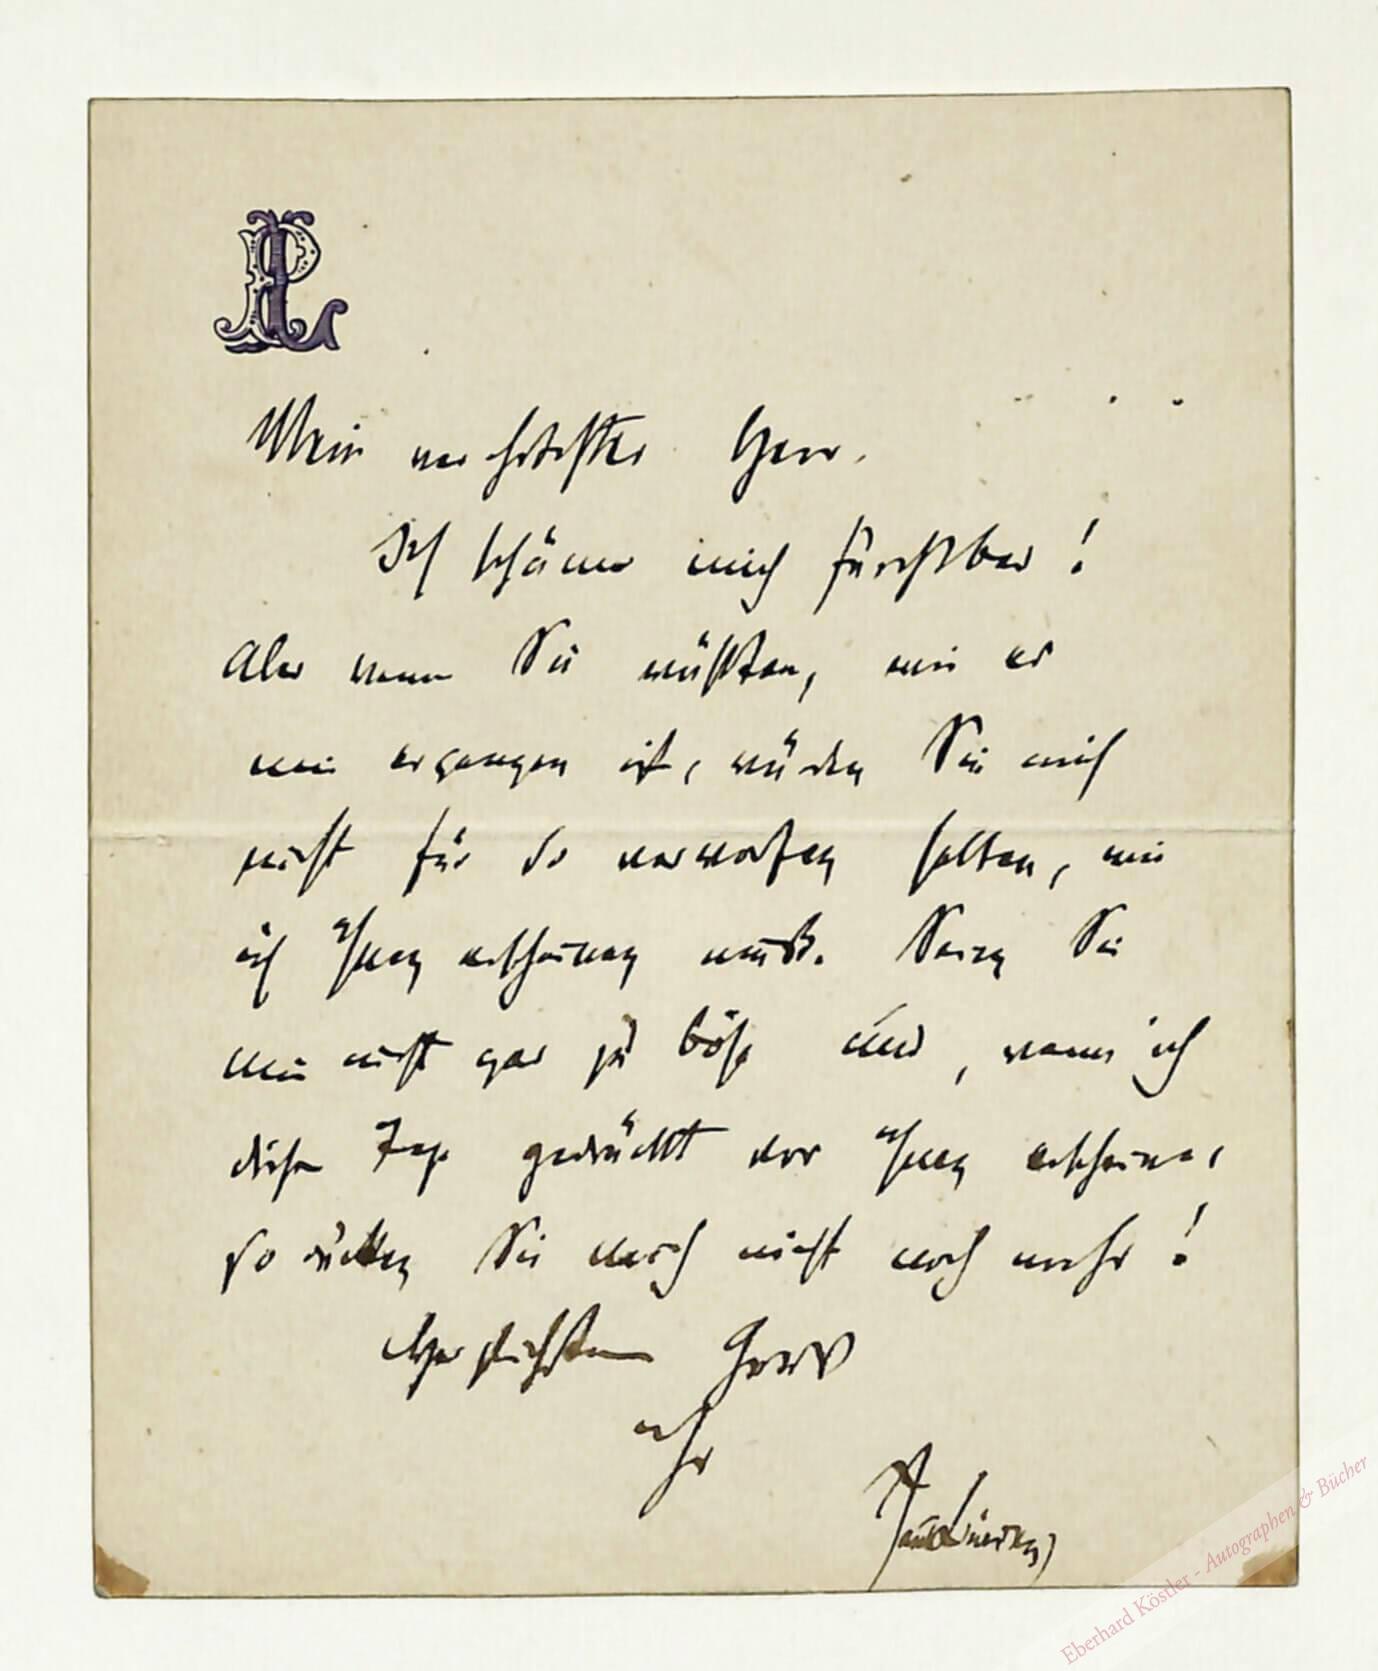 PL
Mein verehrtester Herr.
Ich schäme mich furchtbar!
Aber wenn Sie wüßten, wie es
mir ergangen ist, würden Sie mich
nicht für so verworfen halten, wie
ich Ihnen erscheinen muß. Seien Sie
mir nicht gar zu böse und, wenn ich
diese Tage gedrückt vor Ihnen erscheine,
so drücken Sie mich nicht noch mehr!
Herzlichsten Gruß
Ihr
Paul Lindau
Eberhard Köstler - Autographen & Bücher